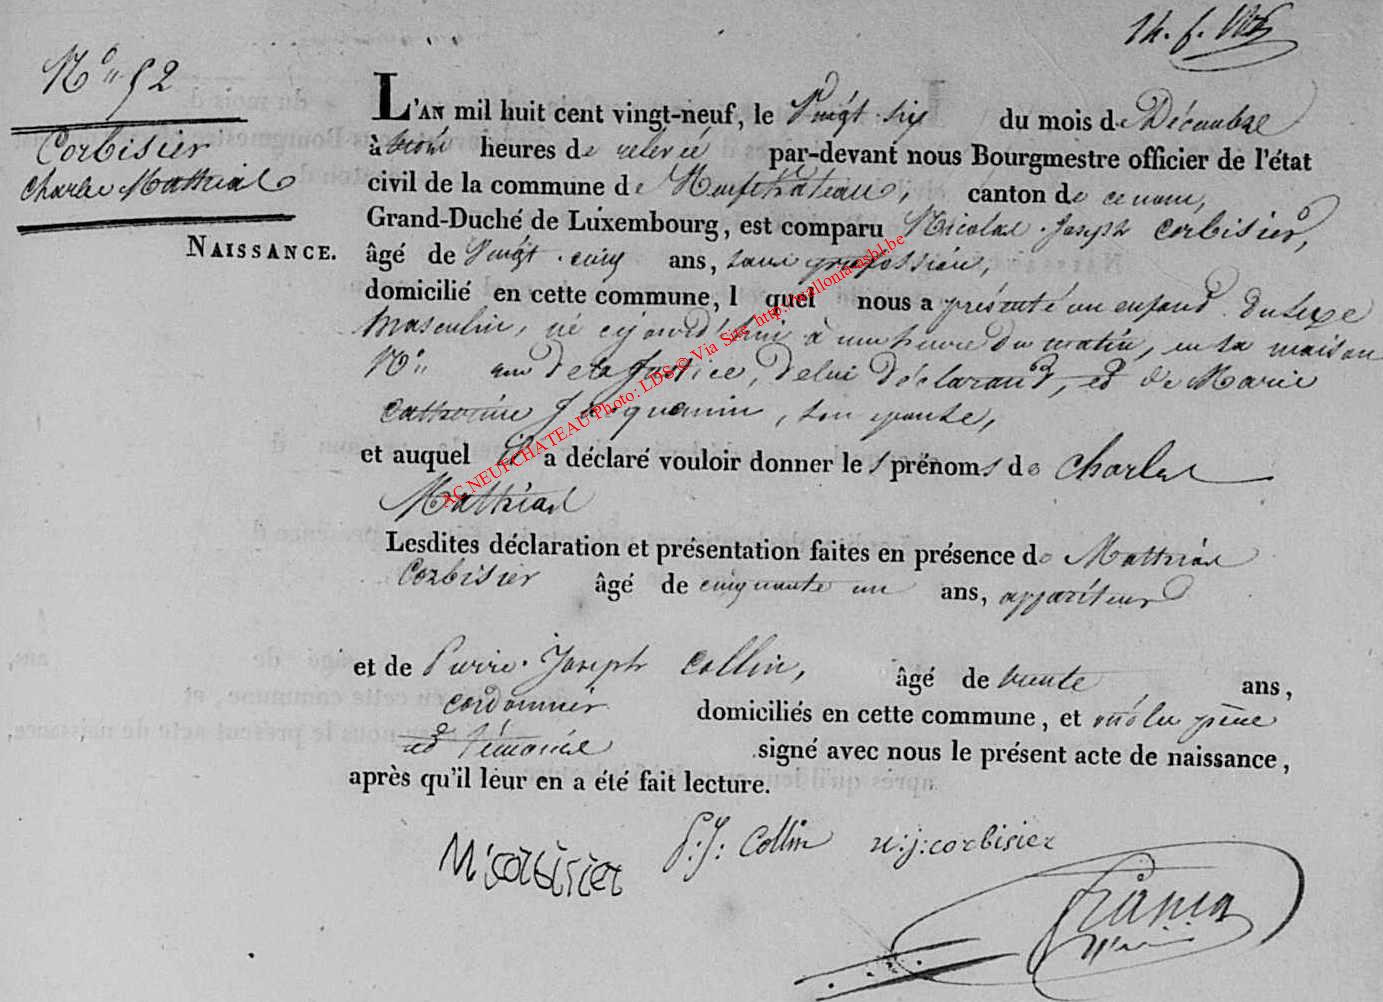 N° 52
Corbisier
Charles Mathias
NAISSANCE.
L'AN mil huit cent vingt-neuf, le Vingt-six du mois de Décembre
à trois heures de relevée par-devant nous Bourgmestre officier de l'état
civil de la commune de Neufchâteau, canton de ce nom,
Grand-Duché de Luxembourg, est comparu Nicolas Joseph Corbisier,
âgé de Vingt-cinq ans, sans profession,
domicilié en cette commune, lequel nous a présenté un enfant du sexe
masculin, né cejourd'hui à une heure du matin, en sa maison
N° rue de la Justice, de lui déclarant, et de Marie
Catherine Jacquemin, son épouse,
et auquel il a déclaré vouloir donner les prénoms de Charles
Mathias
Lesdites déclaration et présentation faites en présence de Matthias
Corbisier âgé de cinquante un ans, appariteur
et de Pierre-Joseph Collin, âgé de trente ans,
cordonnier domiciliés en cette commune, et ont les père
et témoins signé avec nous le présent acte de naissance,
après qu'il leur en a été fait lecture.
M:corbisier P:J: Collin n:j:corbisier
AC NEUFCHATEAU Photo: LDS © Via Site http://wallonia-asbl.be